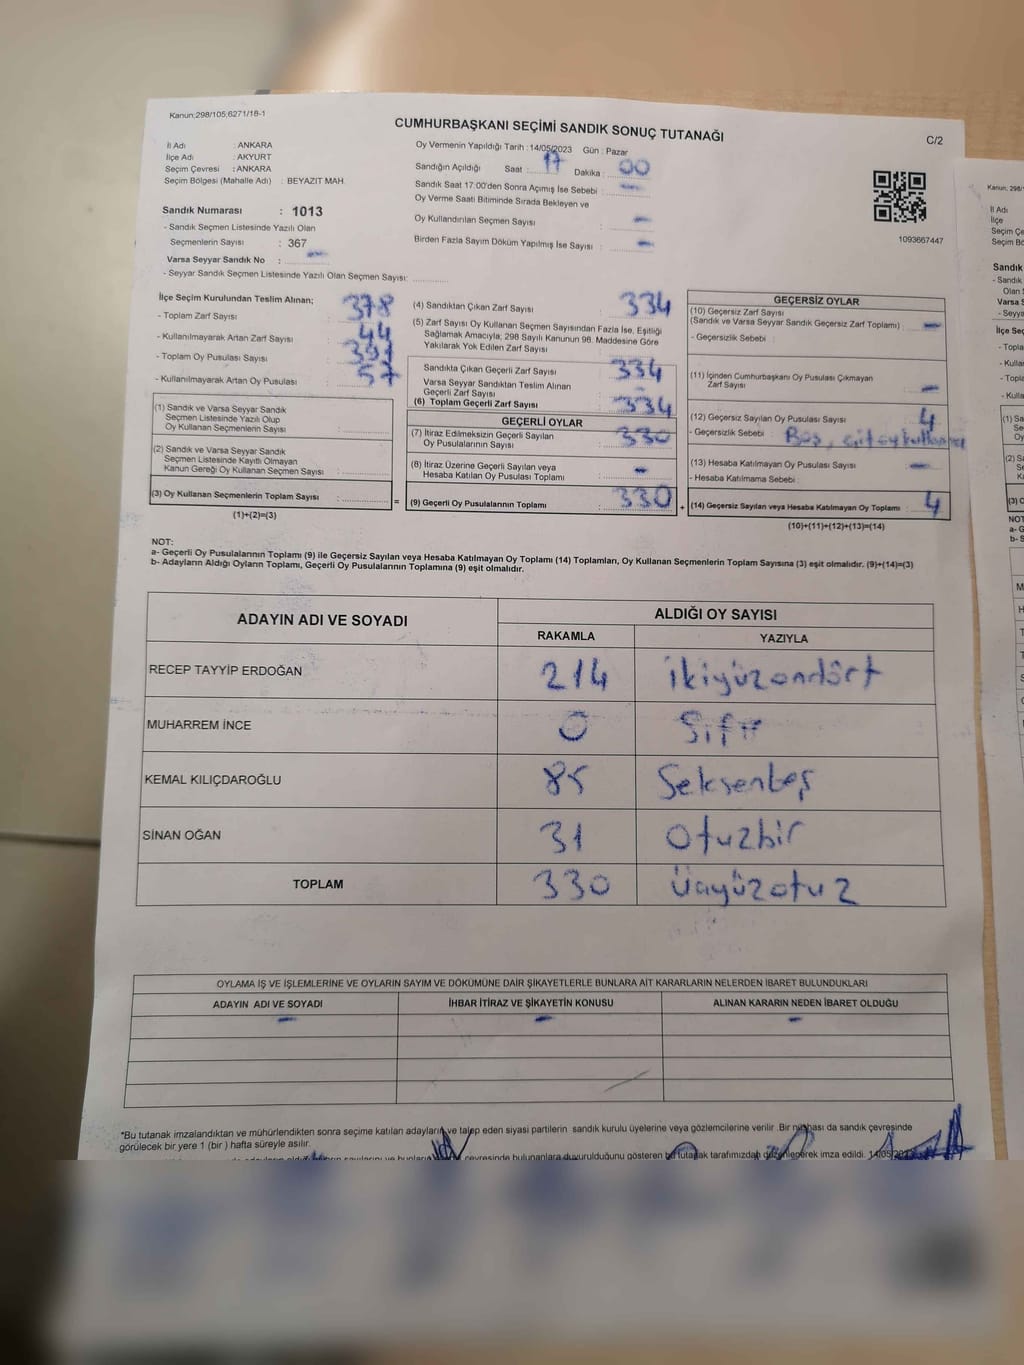 Kanun;298/105;6271/18-1
CUMHURBAŞKANI SEÇİMİ SANDIK SONUÇ TUTANAĞI
C/2
İl Adı : ANKARA
İlçe Adı : AKYURT
Seçim Çevresi : ANKARA
Seçim Bölgesi (Mahalle Adı) : BEYAZIT MAH.
Sandık Numarası : 1013
- Sandık Seçmen Listesinde Yazılı Olan
Seçmenlerin Sayısı : 367
Varsa Seyyar Sandık No : -
- Seyyar Sandık Seçmen Listesinde Yazılı Olan Seçmen Sayısı:
Oy Vermenin Yapıldığı Tarih : 14/05/2023 Gün : Pazar
Sandığın Açıldığı Saat : 17 Dakika : 00
Sandık Saat 17:00'den Sonra Açımış İse Sebebi : -
Oy Verme Saati Bitiminde Sırada Bekleyen ve
Oy Kullandırılan Seçmen Sayısı : -
Birden Fazla Sayım Döküm Yapılmış İse Sayısı : -
1093667447
İlçe Seçim Kurulundan Teslim Alınan;
- Toplam Zarf Sayısı : 378
- Kullanılmayarak Artan Zarf Sayısı : 44
- Toplam Oy Pusulası Sayısı : 391
- Kullanılmayarak Artan Oy Pusulası : 57
(1) Sandık ve Varsa Seyyar Sandık
Seçmen Listesinde Yazılı Olup
Oy Kullanan Seçmenlerin Sayısı :
(2) Sandık ve Varsa Seyyar Sandık
Seçmen Listesinde Kayıtlı Olmayan
Kanun Gereği Oy Kullanan Seçmen Sayısı :
(3) Oy Kullanan Seçmenlerin Toplam Sayısı :
(1)+(2)=(3)
(4) Sandıktan Çıkan Zarf Sayısı : 334
(5) Zarf Sayısı Oy Kullanan Seçmen Sayısından Fazla İse, Eşitliği
Sağlamak Amacıyla; 298 Sayılı Kanunun 98. Maddesine Göre
Yakılarak Yok Edilen Zarf Sayısı
Sandıkta Çıkan Geçerli Zarf Sayısı : 334
Varsa Seyyar Sandıktan Teslim Alınan
Geçerli Zarf Sayısı : -
(6) Toplam Geçerli Zarf Sayısı : 334
GEÇERLİ OYLAR
(7) İtiraz Edilmeksizin Geçerli Sayılan
Oy Pusulalarının Sayısı : 330
(8) İtiraz Üzerine Geçerli Sayılan veya
Hesaba Katılan Oy Pusulası Toplamı : -
= (9) Geçerli Oy Pusulalarının Toplamı : 330
GEÇERSİZ OYLAR
(10) Geçersiz Zarf Sayısı
(Sandık ve Varsa Seyyar Sandık Geçersiz Zarf Toplamı) : -
- Geçersizlik Sebebi :
(11) İçinden Cumhurbaşkanı Oy Pusulası Çıkmayan
Zarf Sayısı : -
(12) Geçersiz Sayılan Oy Pusulası Sayısı : 4
- Geçersizlik Sebebi : Boş, çift oy
(13) Hesaba Katılmayan Oy Pusulası Sayısı : -
- Hesaba Katılmama Sebebi :
+ (14) Geçersiz Sayılan veya Hesaba Katılmayan Oy Toplamı : 4
(10)+(11)+(12)+(13)=(14)
NOT:
a- Geçerli Oy Pusulalarının Toplamı (9) ile Geçersiz Sayılan veya Hesaba Katılmayan Oy Toplamı (14) Toplamları, Oy Kullanan Seçmenlerin Toplam Sayısına (3) eşit olmalıdır. (9)+(14)=(3)
b- Adayların Aldığı Oyların Toplamı, Geçerli Oy Pusulalarının Toplamına (9) eşit olmalıdır.
ADAYIN ADI VE SOYADI ALDIĞI OY SAYISI
RAKAMLA YAZIYLA
RECEP TAYYİP ERDOĞAN 214 ikiyüzondört
MUHARREM İNCE 0 Sıfır
KEMAL KILIÇDAROĞLU 85 Seksenbeş
SİNAN OĞAN 31 Otuzbir
TOPLAM 330 Üçyüzotuz
OYLAMA İŞ VE İŞLEMLERİNE VE OYLARIN SAYIM VE DÖKÜMÜNE DAİR ŞİKAYETLERLE BUNLARA AİT KARARLARIN NELERDEN İBARET BULUNDUKLARI
ADAYIN ADI VE SOYADI İHBAR İTİRAZ VE ŞİKAYETİN KONUSU ALINAN KARARIN NEDEN İBARET OLDUĞU
- - -
*Bu tutanak imzalandıktan ve mühürlendikten sonra seçime katılan adayların ve talep eden siyasi partilerin sandık kurulu üyelerine veya gözlemcilerine verilir .Bir nüshası da sandık çevresinde
görülecek bir yere 1 (bir ) hafta süreyle asılır.
çevresinde bulunanlara duyurulduğunu gösteren bu tutanak tarafımızdan düzenlenerek imza edildi. 14/05/2023
Kanun; 298/
İl Adı
İlçe
Seçim Çe
Seçim Bö
Sandık
- Sandık
Olan
Varsa S
- Seyya
İlçe Seç
- Topla
- Kulla
- Topl
- Kulla